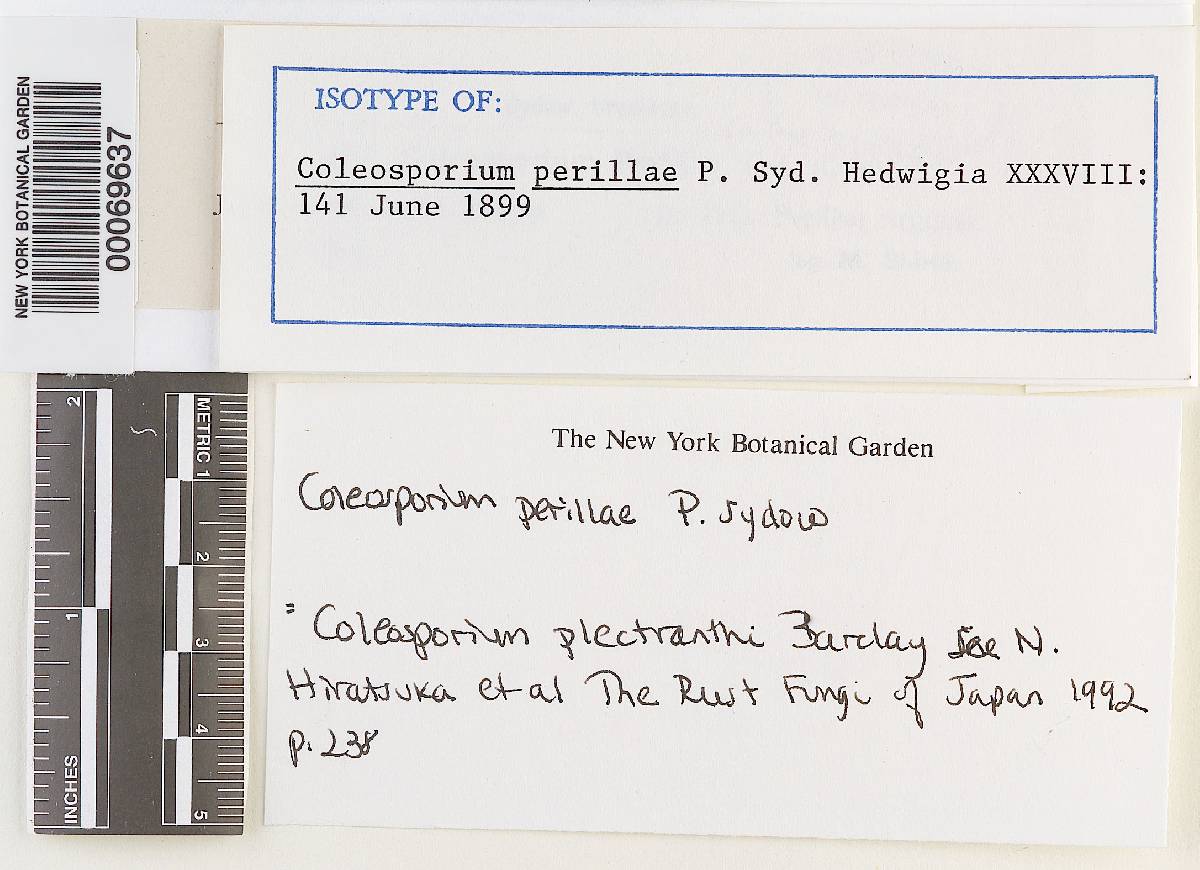 NEW YORK BOTANICAL GARDEN
00069637
ISOTYPE OF:
Coleosporium perillae P. Syd. Hedwigia XXXVIII:
141 June 1899
The New York Botanical Garden
Coleosporium perillae P. Sydow
= Coleosporium plectranthi Barclay See N.
Hiratsuka et al The Rust Fungi of Japan 1992
p. 238
2
1
INCHES
METRIC 1
2
3
4
5